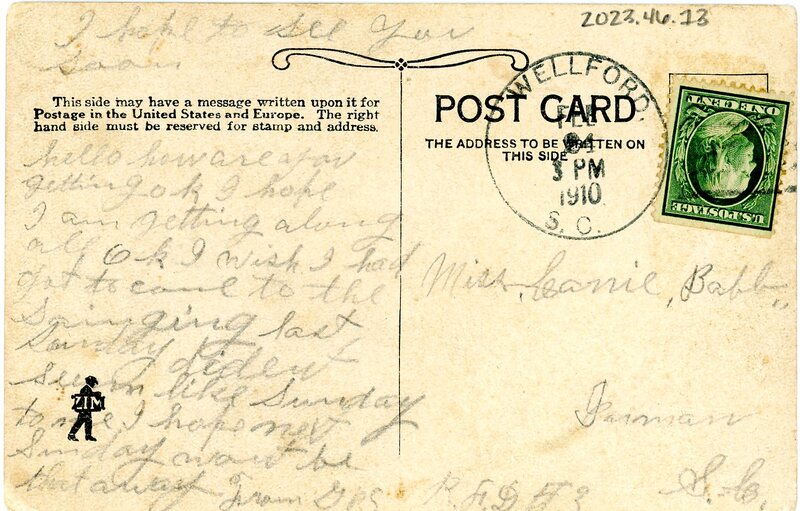 2023.46.13
I hope to see you
soon
This side may have a message written upon it for
Postage in the United States and Europe. The right
hand side must be reserved for stamp and address.
POST CARD
THE ADDRESS TO BE WRITTEN ON
THIS SIDE
WELLFORD
FEB
24
3 PM
1910
S. C.
U.S. POSTAGE
ONE CENT
hello how are you
getting ok I hope
I am getting along
all ok I wish I had
got to come to the
Singing last
Sunday it dident
seem like Sunday
to me I hope next
Sunday wont be
that away From
ZIM
Miss, Canie, Babb,
Inman
S. C.